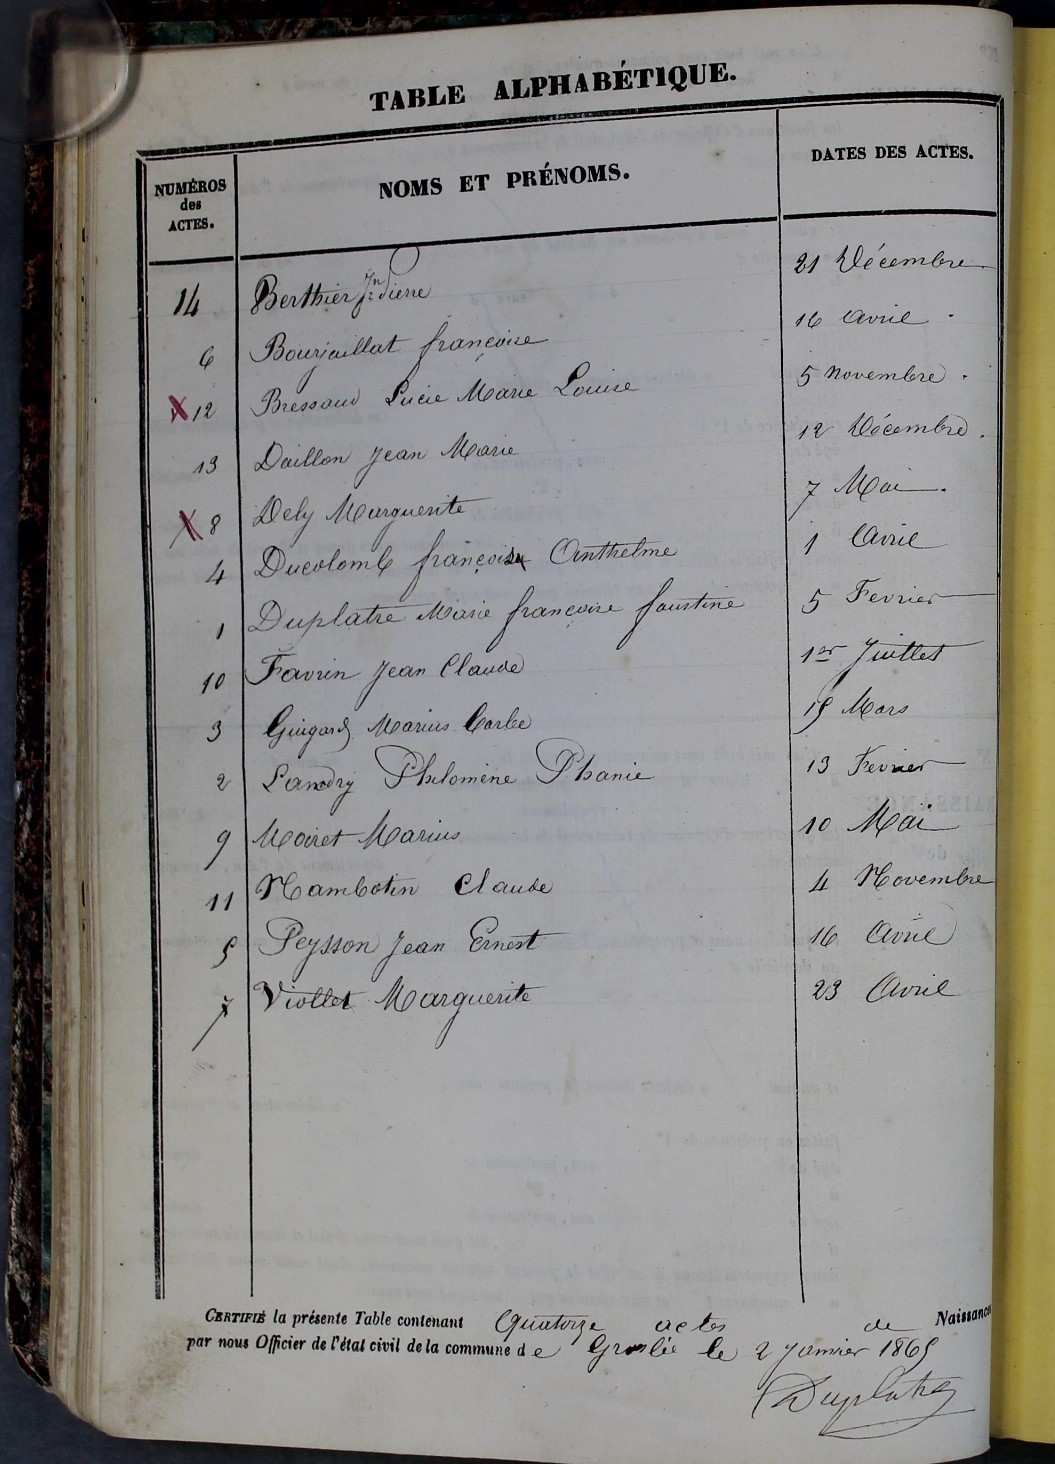 TABLE ALPHABÉTIQUE.
NUMÉROS des ACTES. NOMS ET PRÉNOMS. DATES DES ACTES.
14 Berthier Jn Pierre 21 Décembre
6 Bourjaillat françoise 16 Avril
X 12 Bressoud Lucie Marie Louise 5 Novembre
13 Daillon Jean Marie 12 Décembre
X 8 Dely Marguerite 7 Mai
4 Ducolomb françois Anthelme 1 Avril
1 Duplatre Marie françoise faustine 5 Fevrier
10 Favrin Jean Claude 1er Juillet
3 Guigard Marius 15 Mars
2 Landry Philomène Phanie 13 Fevrier
9 Moiret Marius 10 Mai
11 Nambotin Claude 4 Novembre
5 Peysson Jean Ernest 16 Avril
7 Viollet Marguerite 23 Avril
CERTIFIÉ la présente Table contenant Quatorze actes de Naissance
par nous Officier de l'état civil de la commune de Groslée le 2 Janvier 1865
Duplatre